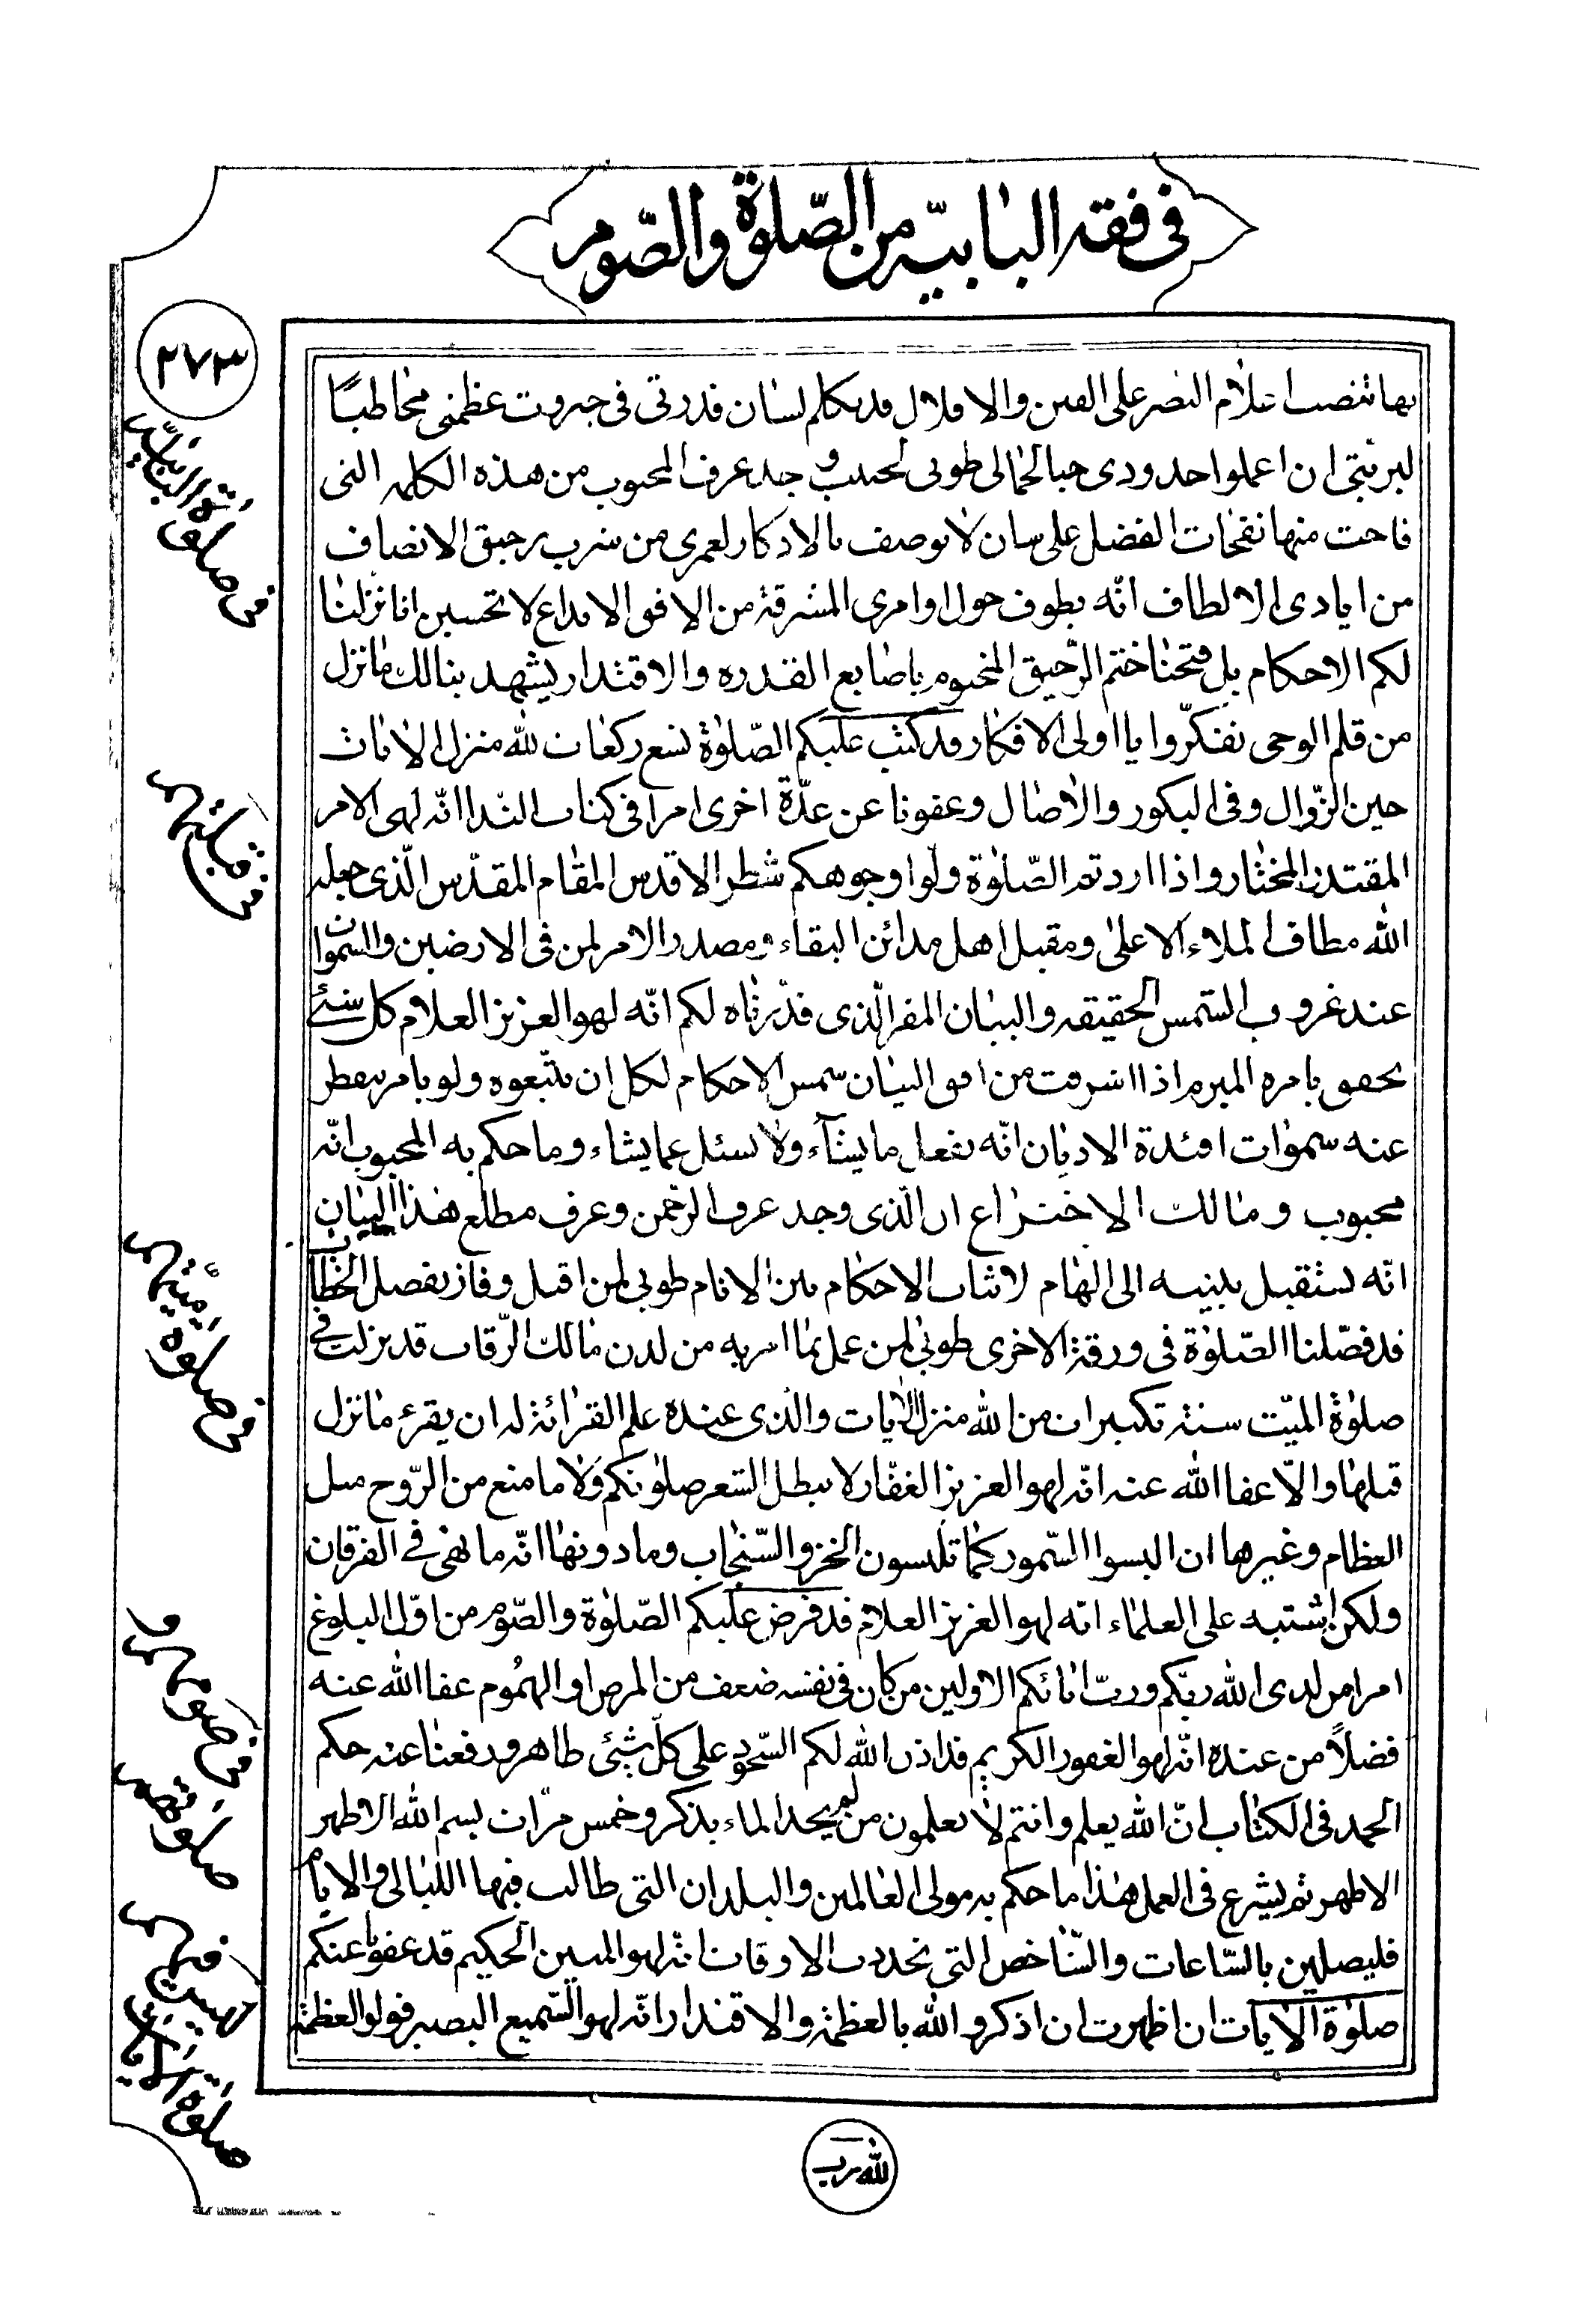 فی فقه البابیه من الصّلوة والصّوم
٢٧٣
بها تنصب اعلام النصر على القنن والاقلال قد تكلم لسان قدرتی فی جبروت عظمتی مخاطبًا
لبریّتی ان اعملوا حدودی حبا لجمالی طوبی لحبیب وجد عرف المحبوب من هذه الكلمه التی
فاحت منها نفحات الفضل علی شان لا توصف بالاذكار لعمری من شرب رحیق الانصاف
من ایادی الالطاف انّه یطوف حول اوامری المشرقة من الافق الابداع لا تحسبن انا نزّلنا
لكم الاحكام بل فتحنا ختم الرّحیق المختوم باصابع القدره والاقتدار یشهد بذالك مانزل
من قلم الوحی تفكّروا یا اولی الافكار قد كتب علیكم الصّلوة تسع ركعات لله منزل الایات
حین الزّوال وفی البكور والاصال وعفونا عن عدّة اخری امرا فی كتاب الله انّه لهی الامر
المقتدر المختار واذا اردتم الصّلوة ولّوا وجوهكم شطر الاقدس المقام المقدّس الّذی جعله
الله مطاف الملاء الاعلی ومقبل اهل مدائن البقاء ومصدر الامر لمن فی الارضین والسموات
عند غروب الشمس الحقیقه والبیان المقر الّذی قدّرناه لكم انّه لهو العزیز العلام كل شیئ
تحقق بامره المبرم اذا اشرقت من افق البیان شمس الاحكام لكل ان یتّبعوه ولو بامر ینفطر
عنه سموات افئدة الادیان انّه یفعل ما یشآء ولا یسئل عما یشاء وما حكم به المحبوب انّه
محبوب ومالك الاختراع ان الّذی وجد عرف الرحمن وعرف مطلع هذا البیان
انّه یستقبل بعینیه الی الهام لاثبات الاحكام بین الانام طوبی لمن اقبل وفاز بفصل الخطاب
قد فصّلنا الصّلوة فی ورقة الاخری طوبی لمن عمل بما امر به من لدن مالك الرّقاب قد نزلت فی
صلوة المیّت ستة تكبیرات من الله منزل الایات والذی عنده علم القرائة له ان یقرء مانزل
قبلها والّا عفا الله عنه انّه لهو العزیز الغفّار لا یبطل الشعر صلوتكم ولا ما منع من الرّوح مثل
العظام وغیرها ان البسوا السّمور كما تلبسون الخز والسّنجاب وما دونها انّه ما نهی فی الفرقان
ولكن اشتبه علی العلماء انّه لهو العزیز العلام قد فرض علیكم الصّلوة والصّوم من اوّل البلوغ
امرا من لدی الله ربّكم وربّ ابائكم الاولین من كان فی نفسه ضعف من المرض او الهموم عفا الله عنه
فضلًا من عنده انّه لهو الغفور الكریم قد اذن الله لكم السّجود علی كلّ شیئ طاهر ورفعنا عنه حكم
الحمد فی الكتاب انّ الله یعلم وانتم لا تعلمون من لم یجد الماء یذكر وخمس مرّات بسم الله الاطهر
الاطهر ثم یشرع فی العمل هذا ما حكم به مولی العالمین والبلدان التی طالت فیها اللیالی والایام
فلیصلین بالسّاعات والشّاخص التی تحددت الاوقات انّه لهو المبین الحكیم قد عفونا عنكم
صلوة الایات ان اظهرت ان اذكروا الله بالعظمة والاقتدار انّه لهو السّمیع البصیر قولوا العظمة
فی صلوة البابیّه
فی قبلتهم
فی صلوة میّتهم
فی صومهم و
صلوتهم
صلوة الایات
لله رب